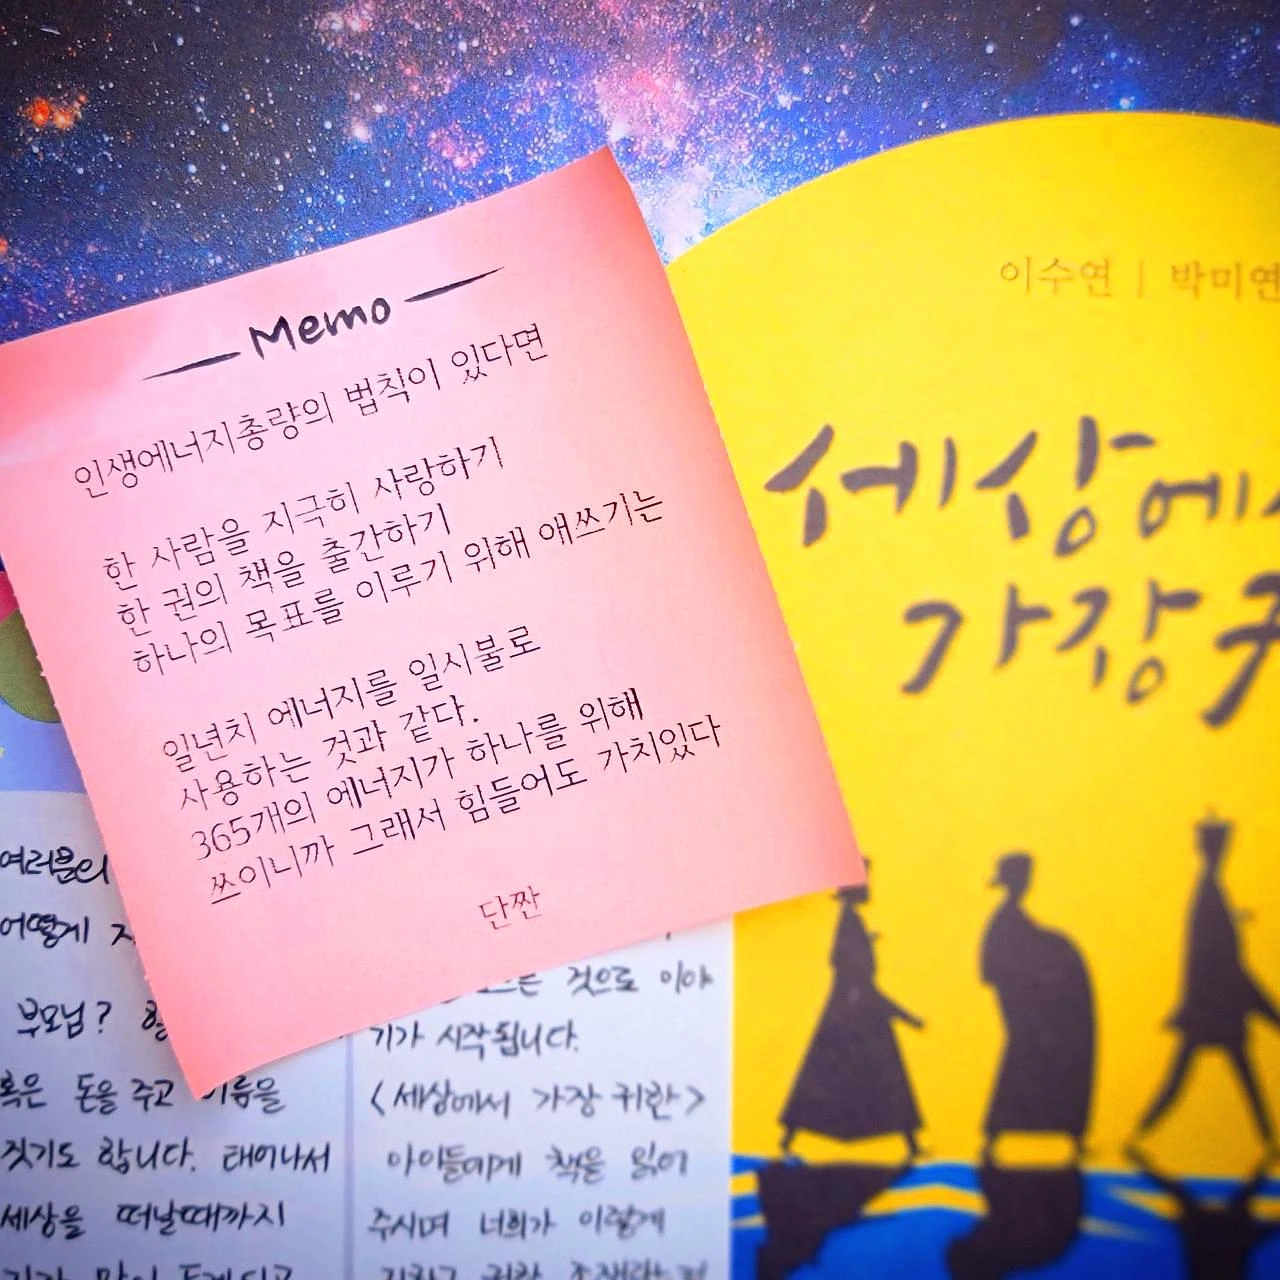 Memo
인생에너지총량의 법칙이 있다면
한 사람을 지극히 사랑하기
한 권의 책을 출간하기
하나의 목표를 이루기 위해 애쓰기는
일년치 에너지를 일시불로
사용하는 것과 같다.
365개의 에너지가 하나를 위해
쓰이니까 그래서 힘들어도 가치있다
단짠
이수연 | 박미연
세상에서
가장
여러분의
어떻게
부모님?
혹은 돈을 주고 이름을
짓기도 합니다. 태어나서
세상을 떠날때까지
것으로 이야
기가 시작됩니다.
<세상에서 가장 귀한>
아이들에게 책을 읽어
주시며 너희가 이렇게